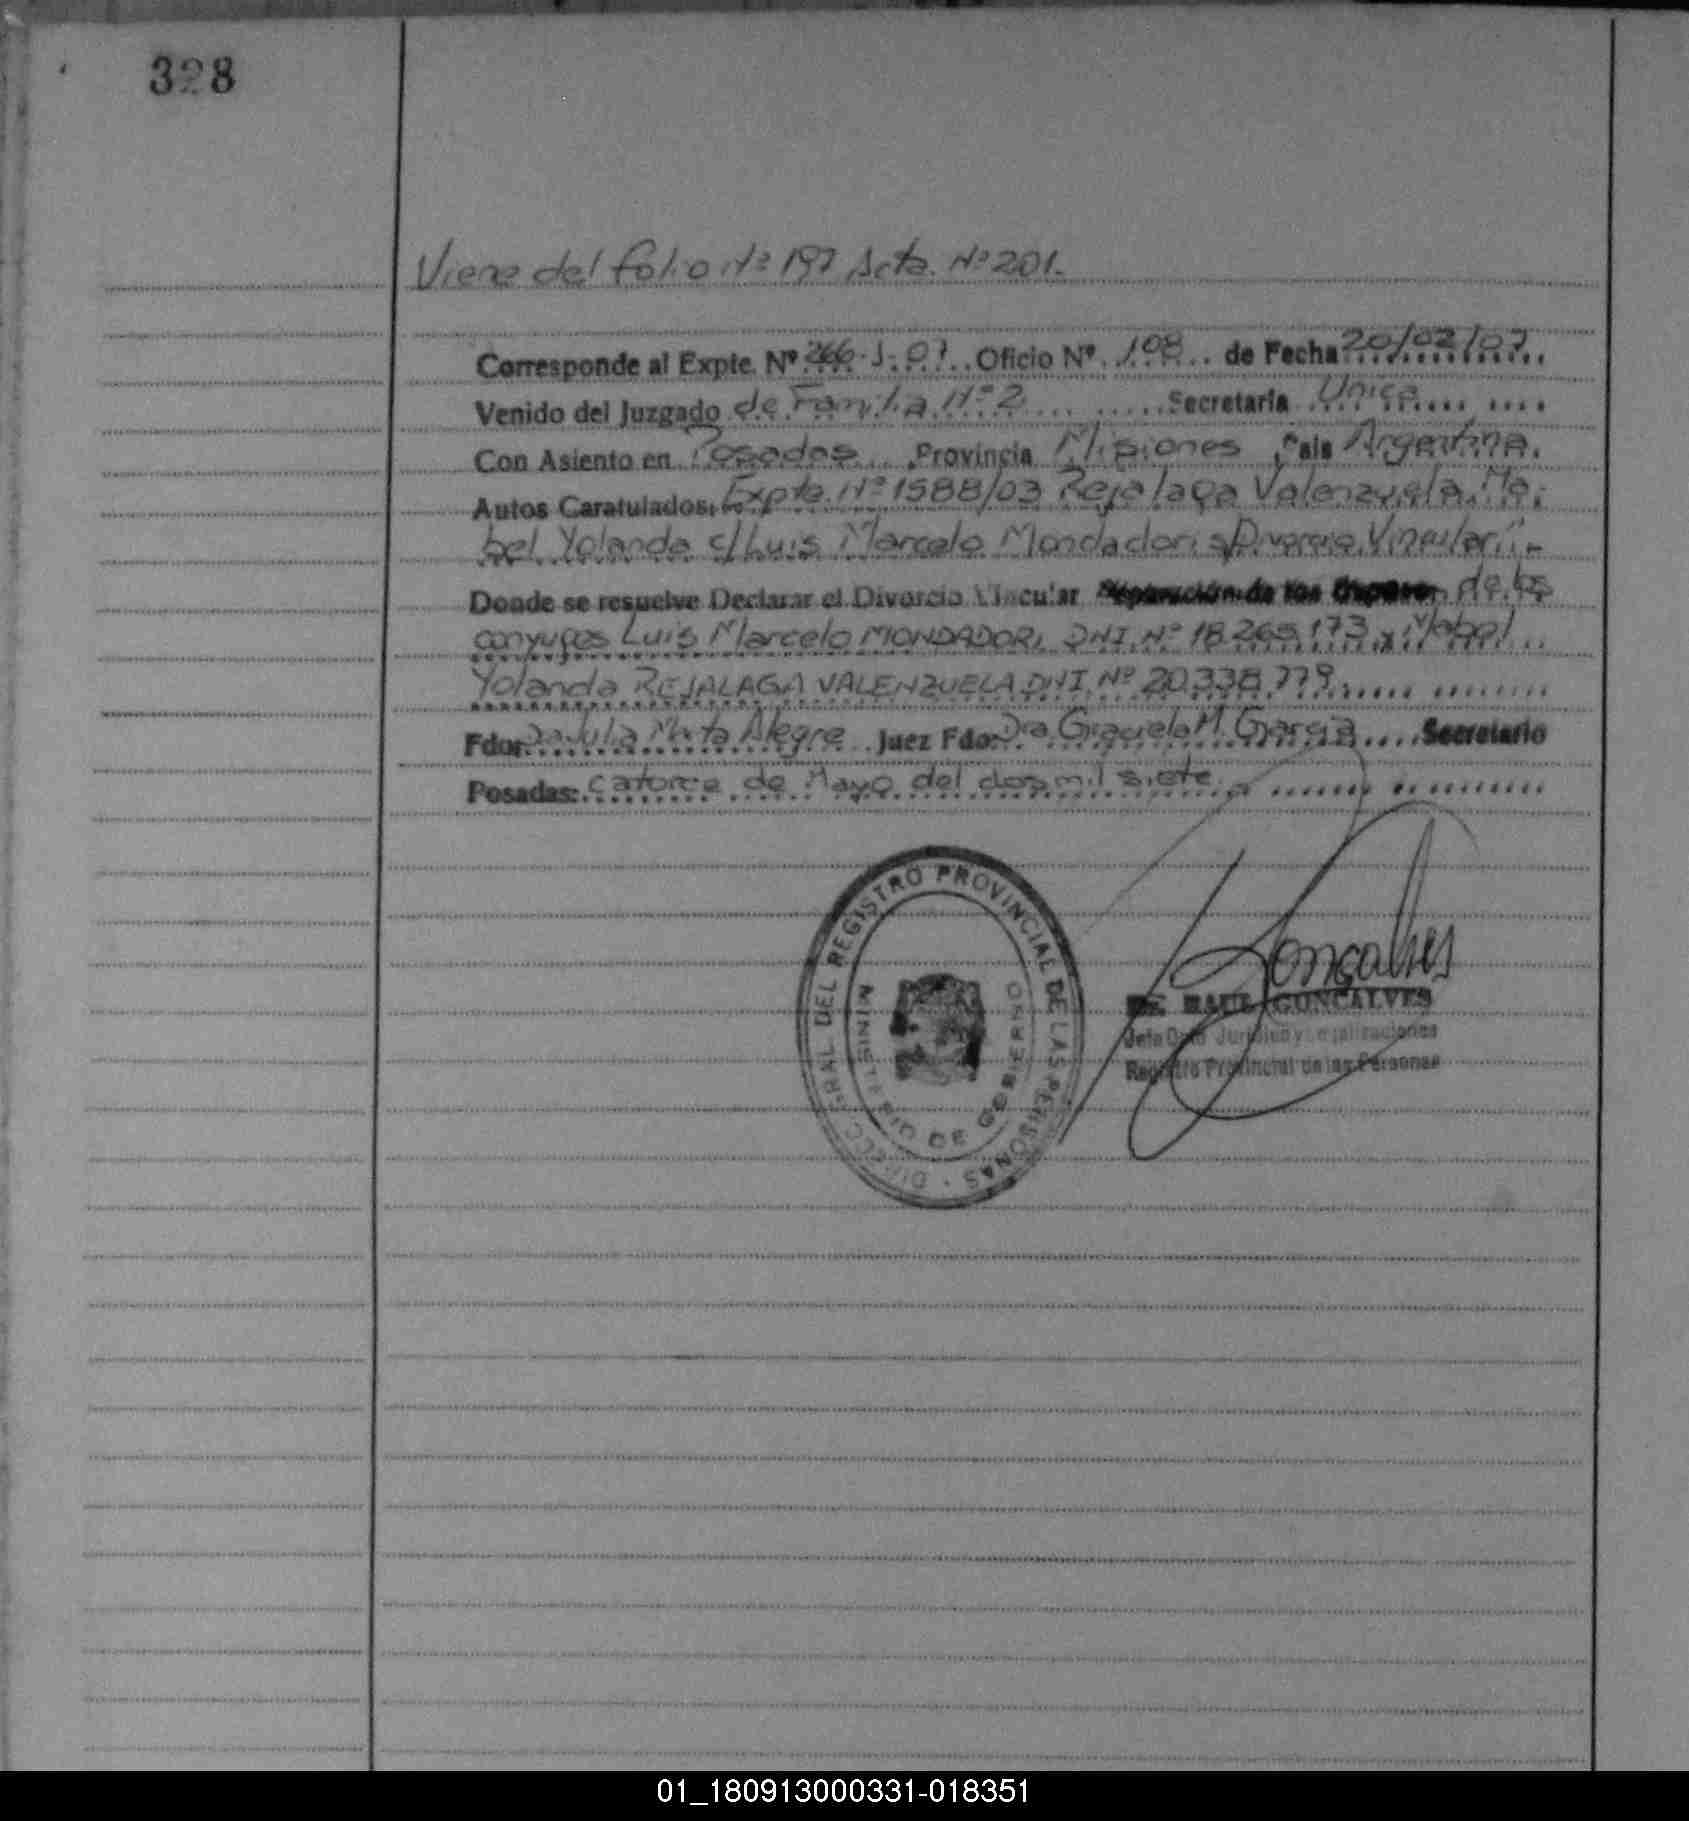 328
Viene del folio Nº 197 Acta. Nº 201.
Corresponde al Expte. Nº 266. J. 07 Oficio Nº 108 de Fecha 20/02/07
Venido del Juzgado de Familia Nº 2 Secretaria Unica
Con Asiento en Posadas Provincia Misiones Pais Argentina.
Autos Caratulados: Expte. Nº 1588/03 Rejalaga Valenzuela Ma-
bel Yolanda c/ Luis Marcelo Mondadori s/ Divorcio Vincular"-
Donde se resuelve Declarar el Divorcio Vincular de los
conyuges Luis Marcelo MONDADORI DNI. Nº 18.265.173 y Mabel
Yolanda REJALAGA VALENZUELA DNI. Nº 20.338.779
Fdo: Dra Julia Alegre Juez Fdo: Dra Graciela M. Garcia Secretario
Posadas: catorce de Mayo del dos mil siete
DIRECC. GRAL DEL REGISTRO PROVINCIAL DE LAS PERSONAS
MINISTERIO DE GOBIERNO
Goncalves
RAUL GONCALVES
Jefe Dpto Juridico y Legalizaciones
Registro Provincial de las Personas
01_180913000331-018351